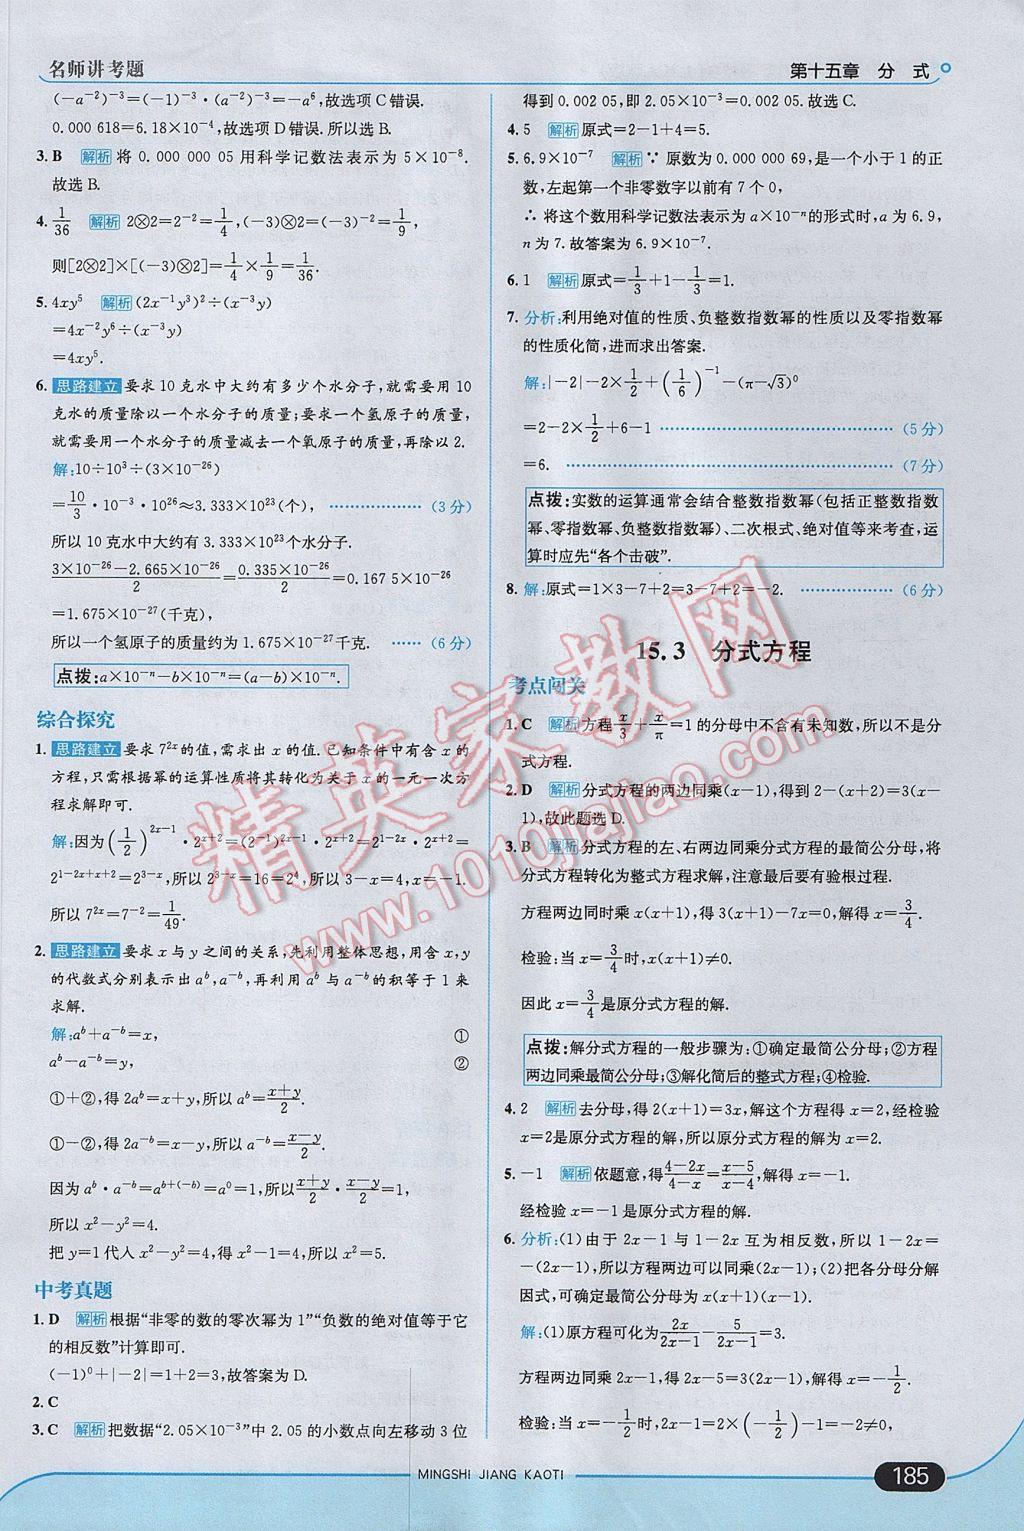 名师讲考题
第十五章 分 式
(-a⁻²)⁻³=(-1)⁻³·(a⁻²)⁻³=-a⁶,故选项C错误.
0.000 618=6.18×10⁻⁴,故选项D错误.所以选B.
3. B 解析 将 0.000 000 05 用科学记数法表示为 5×10⁻⁸.
故选B.
4. 1/36 解析 2⊗2=2⁻²=1/4,(-3)⊗2=(-3)⁻²=1/9,
则[2⊗2]×[(-3)⊗2]=1/4×1/9=1/36.
5. 4xy⁵ 解析 (2x⁻¹y³)²÷(x⁻³y)
=4x⁻²y⁶÷(x⁻³y)
=4xy⁵.
6. 思路建立 要求10克水中大约有多少个水分子,就需要用10
克水的质量除以一个水分子的质量;要求一个氢原子的质量,
就需要用一个水分子的质量减去一个氧原子的质量,再除以2.
解:10÷10³÷(3×10⁻²⁶)
=10/3·10⁻³·10²⁶≈3.333×10²³(个), ……………… (3分)
所以10克水中大约有3.333×10²³个水分子.
(3×10⁻²⁶-2.665×10⁻²⁶)/2=(0.335×10⁻²⁶)/2=0.167 5×10⁻²⁶
=1.675×10⁻²⁷(千克),
所以一个氢原子的质量约为1.675×10⁻²⁷千克. …… (6分)
点拨:a×10⁻ⁿ-b×10⁻ⁿ=(a-b)×10⁻ⁿ.
综合探究
1. 思路建立 要求7²ˣ的值,需求出x的值.已知条件中有含x的
方程,只需根据幂的运算性质将其转化为关于x的一元一次方
程求解即可.
解:因为(1/2)²ˣ⁻¹·2ˣ⁺²=(2⁻¹)²ˣ⁻¹·2ˣ⁺²=2¹⁻²ˣ·2ˣ⁺²=
2¹⁻²ˣ⁺ˣ⁺²=2³⁻ˣ,所以2³⁻ˣ=16=2⁴,所以3-x=4,x=-1.
所以7²ˣ=7⁻²=1/49.
2. 思路建立 要求x与y之间的关系,先利用整体思想,用含x,y
的代数式分别表示出aᵇ,a⁻ᵇ,再利用aᵇ与a⁻ᵇ的积等于1来
求解.
解:aᵇ+a⁻ᵇ=x, ①
aᵇ-a⁻ᵇ=y, ②
①+②,得2aᵇ=x+y,所以aᵇ=(x+y)/2.
①-②,得2a⁻ᵇ=x-y,所以a⁻ᵇ=(x-y)/2.
因为aᵇ·a⁻ᵇ=aᵇ⁺⁽⁻ᵇ⁾=a⁰=1,所以(x+y)/2·(x-y)/2=1,
所以x²-y²=4.
把y=1代入x²-y²=4,得x²-1=4,所以x²=5.
中考真题
1. D 解析 根据“非零的数的零次幂为1”“负数的绝对值等于它
的相反数”计算即可.
(-1)⁰+|-2|=1+2=3,故答案为D.
2. C
3. C 解析 把数据“2.05×10⁻³”中2.05的小数点向左移动3位
得到0.002 05,即2.05×10⁻³=0.002 05.故选C.
4. 5 解析 原式=2-1+4=5.
5. 6.9×10⁻⁷ 解析 ∵ 原数为0.000 000 69,是一个小于1的正
数,左起第一个非零数字以前有7个0,
∴ 将这个数用科学记数法表示为a×10⁻ⁿ的形式时,a为6.9,
n为7.故答案为6.9×10⁻⁷.
6. 1 解析 原式=1/3+1-1/3=1.
7. 分析:利用绝对值的性质、负整数指数幂的性质以及零指数幂
的性质化简,进而求出答案.
解:|-2|-2×1/2+(1/6)⁻¹-(π-√3)⁰
=2-2×1/2+6-1 ……………… (5分)
=6. ……………… (7分)
点拨:实数的运算通常会结合整数指数幂(包括正整数指数
幂、零指数幂、负整数指数幂)、二次根式、绝对值等来考查,运
算时应先“各个击破”.
8. 解:原式=1×3-7+2=3-7+2=-2. ……………… (6分)
15.3 分式方程
考点闯关
1. C 解析 方程x/3+x/π=1的分母中不含有未知数,所以不是分
式方程.
2. D 解析 分式方程的两边同乘(x-1),得到2-(x+2)=3(x-
1),故此题选D.
3. B 解析 分式方程的左、右两边同乘分式方程的最简公分母,将
分式方程转化为整式方程求解,注意最后要有验根过程.
方程两边同时乘x(x+1),得3(x+1)-7x=0,解得x=3/4.
检验:当x=3/4时,x(x+1)≠0.
因此x=3/4是原分式方程的解.
点拨:解分式方程的一般步骤为:①确定最简公分母;②方程
两边同乘最简公分母;③解化简后的整式方程;④检验.
4. 2 解析 去分母,得2(x+1)=3x,解这个方程得x=2,经检验
x=2是原分式方程的解,所以原分式方程的解为x=2.
5. -1 解析 依题意,得(4-2x)/(4-x)=(x-5)/(x-4),解得x=-1.
经检验x=-1是原分式方程的解.
6. 分析:(1)由于2x-1与1-2x互为相反数,所以1-2x=
-(2x-1),所以方程两边可以同乘(2x-1);(2)把各分母分解
因式,可确定最简公分母为x(x+1)(x-1).
解:(1)原方程可化为2x/(2x-1)-5/(2x-1)=3.
方程两边同乘2x-1,得2x-5=3(2x-1),解得x=-1/2.
检验:当x=-1/2时,2x-1=2×(-1/2)-1=-2≠0,
精英家教网
www.1010jiajiao.com
MINGSHI JIANG KAOTI
185